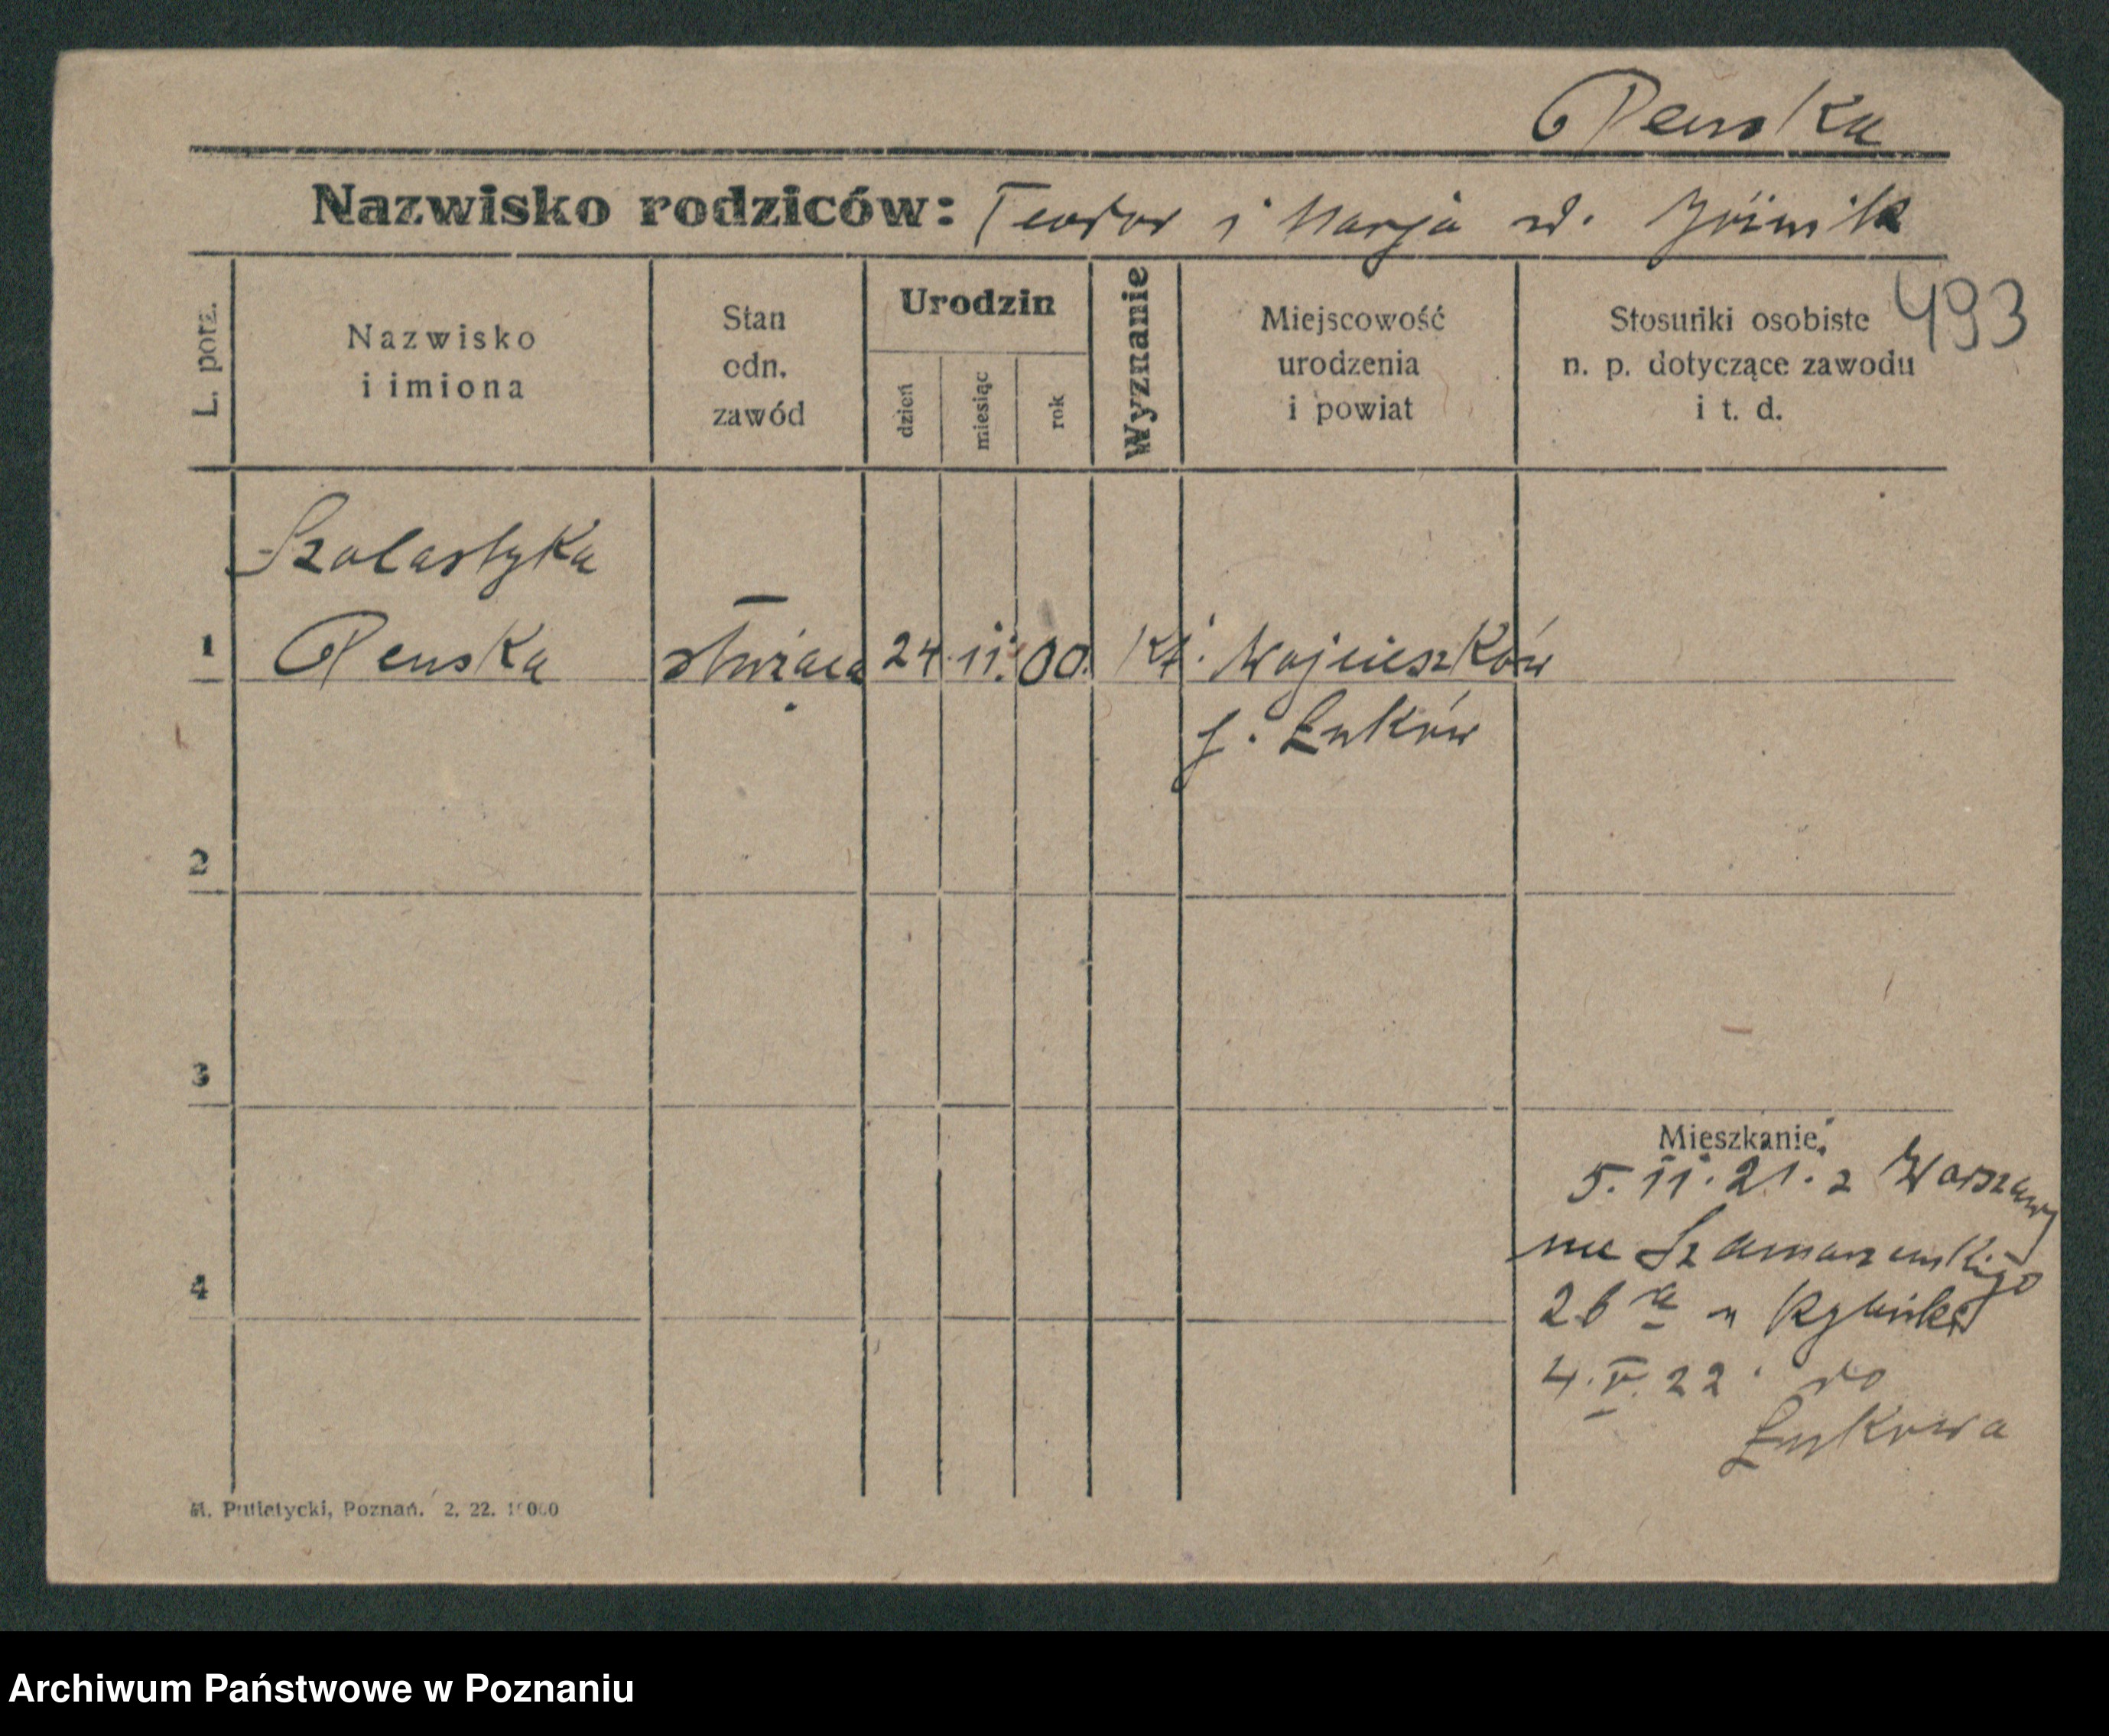 Penska
Nazwisko rodziców: Teodor i Marja
493
L. porz.
Nazwisko
i imiona
Stan
odn.
zawód
Urodzin
dzień
miesiąc
rok
Wyznanie
Miejscowość
urodzenia
i powiat
Stosunki osobiste
n. p. dotyczące zawodu
i t. d.
Szolastyka
1 Penska służąca 24 11. 00. kt. Wojcieszków
p. Łuków
2
3
4
Mieszkanie
5. 11. 21. z Warszawy
Szamarzewskigo
26 a u
4. V. 22. do
Łukowa
M. Putiatycki, Poznań. 2. 22. 10000
Archiwum Państwowe w Poznaniu